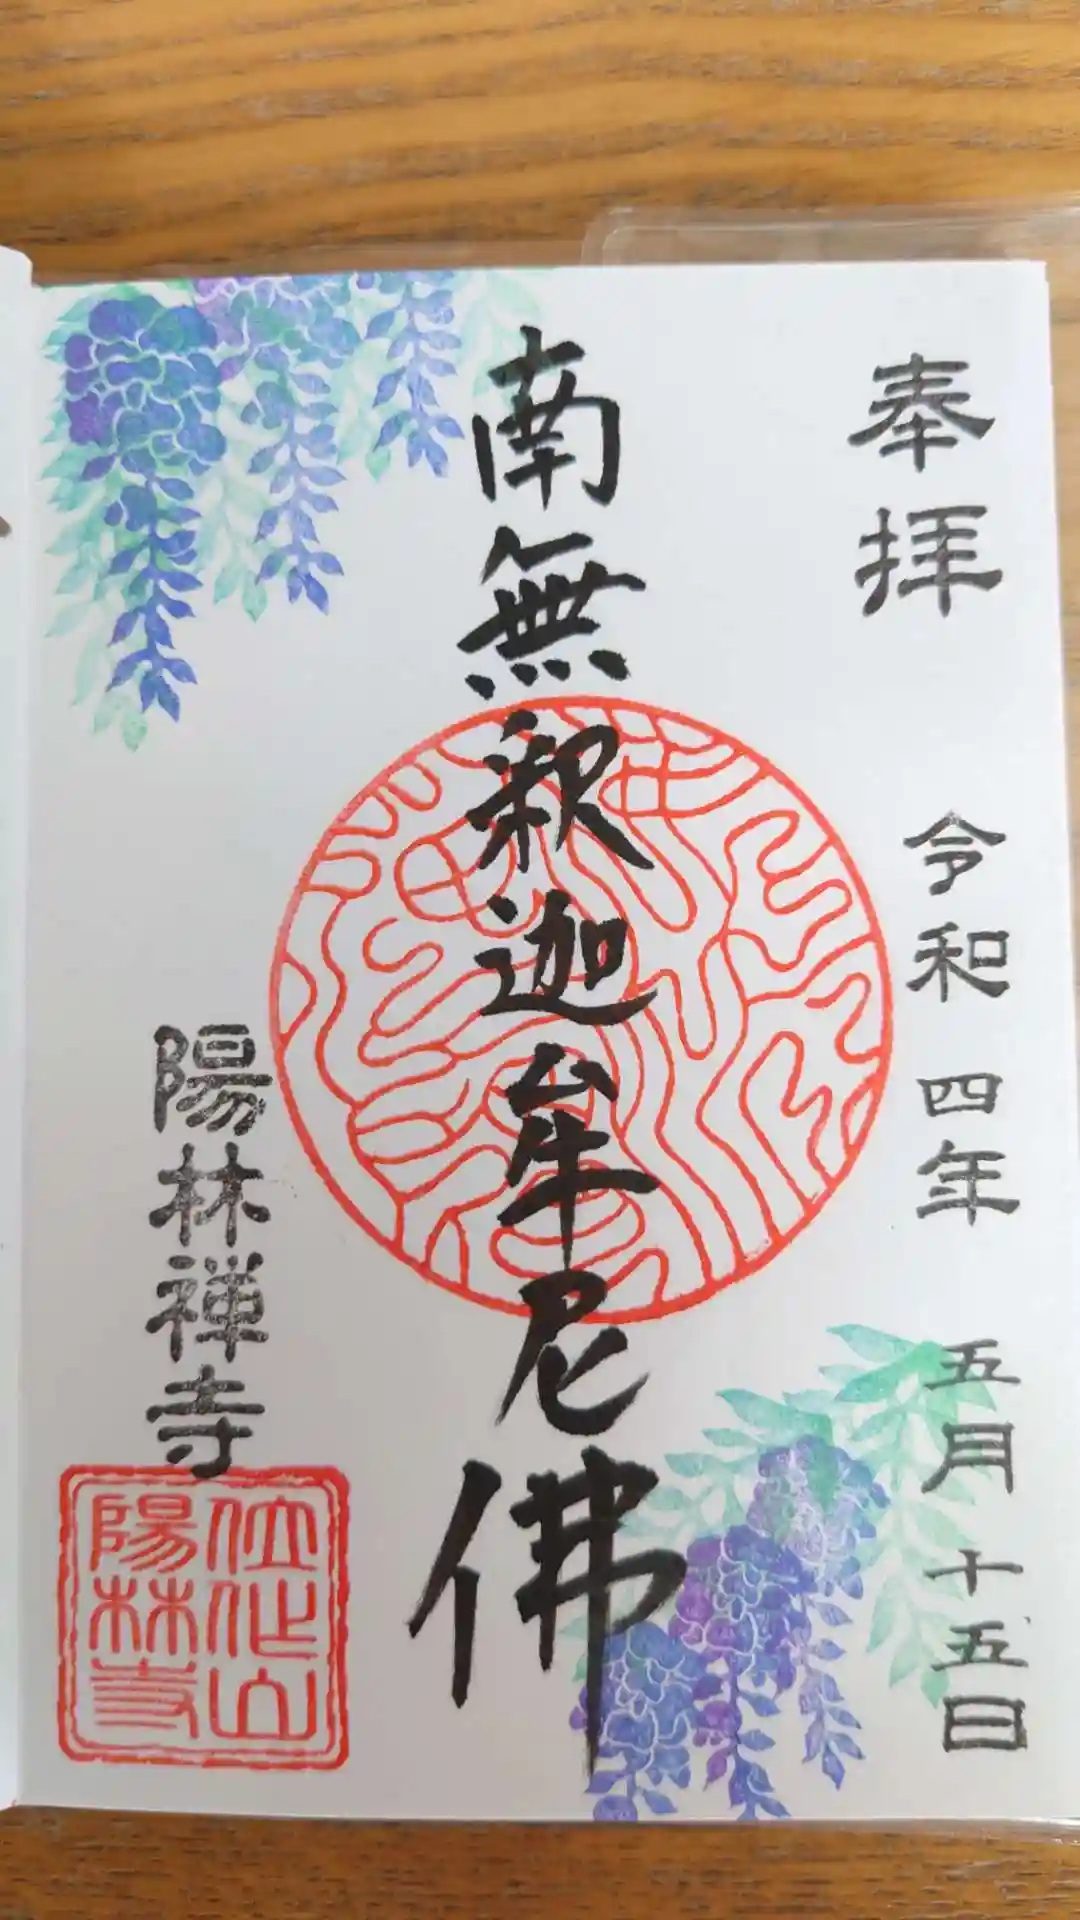 奉拝
令和四年五月十五日
南無釈迦牟尼佛
陽林禅寺
陽林寺